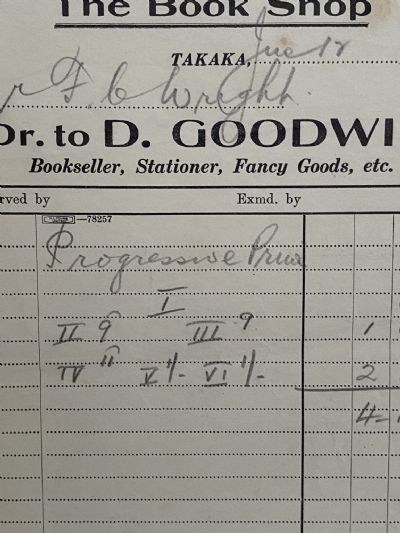 The Book Shop
TAKAKA, June 12
F. C. Wright.
Dr. to D. GOODWI
Bookseller, Stationer, Fancy Goods, etc.
rved by Exmd. by
—78257
Progressive Prim
I
II 9 III 9 1
IV 11 V 1/- VI 1/- 2
4-